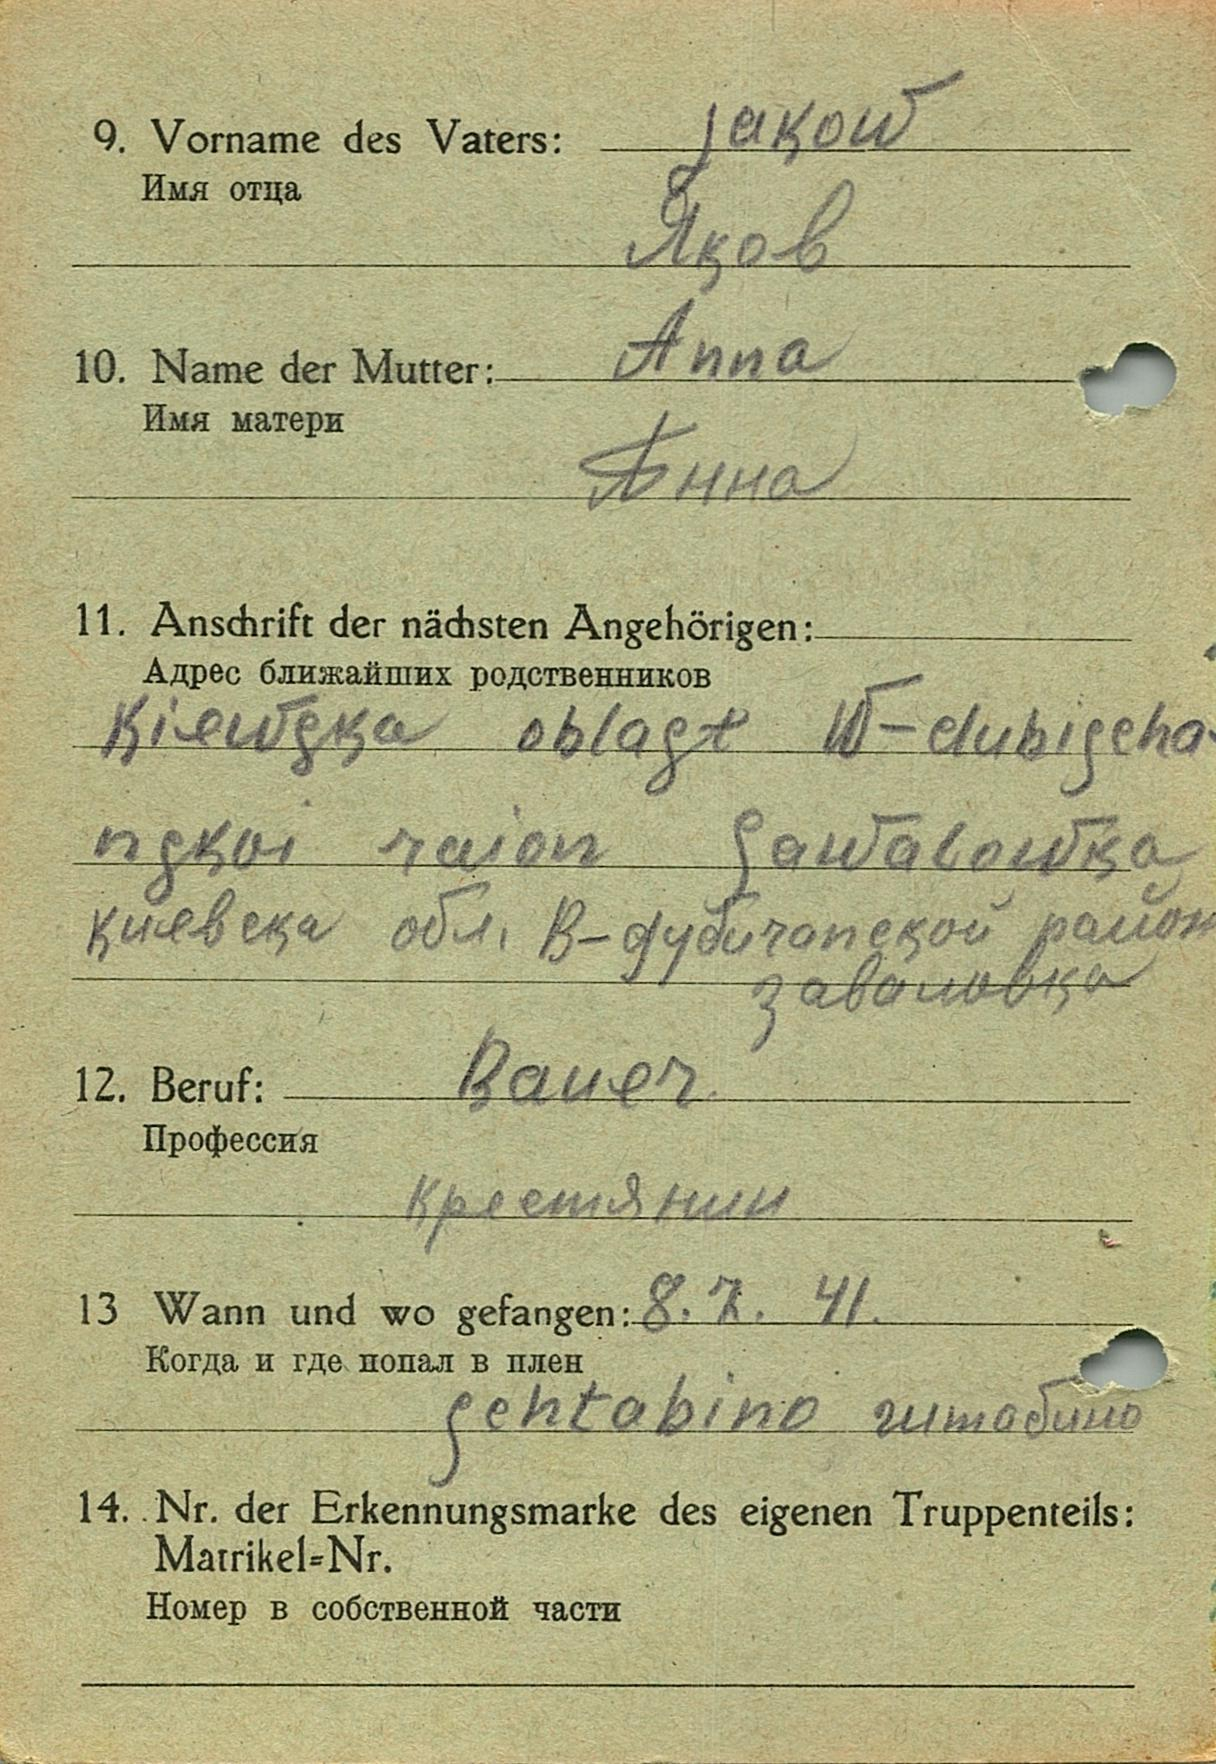 9. Vorname des Vaters: Jakow
Имя отца
Яков
10. Name der Mutter: Anna
Имя матери
Анна
11. Anschrift der nächsten Angehörigen:
Адрес ближайших родственников
Kiewska oblast W-dubischa-
nskoi raion Sawalowka
киевска обл. В-дубичанской район
заваловка
12. Beruf: Bauer.
Профессия
крестянин
13 Wann und wo gefangen: 8.7. 41.
Когда и где попал в плен
Schtabino
14. Nr. der Erkennungsmarke des eigenen Truppenteils:
Matrikel=Nr.
Номер в собственной части